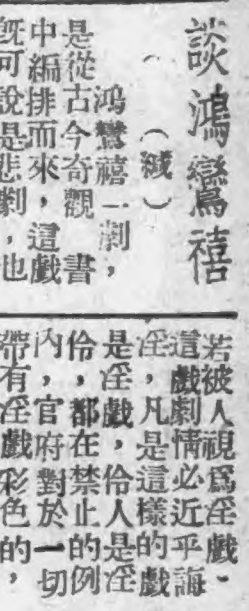 談鴻鸞禧
（緘）
鴻鸞禧一劇，
是從古今奇觀書
中編排而來，這戲
旣可說是悲劇，也
若被人視爲淫戲。
這戲劇情必近乎誨
淫，凡是這樣的戲
是淫戲，伶人是淫
伶，都在禁止的例
內，官府對於一切
帶有淫戲彩色的，